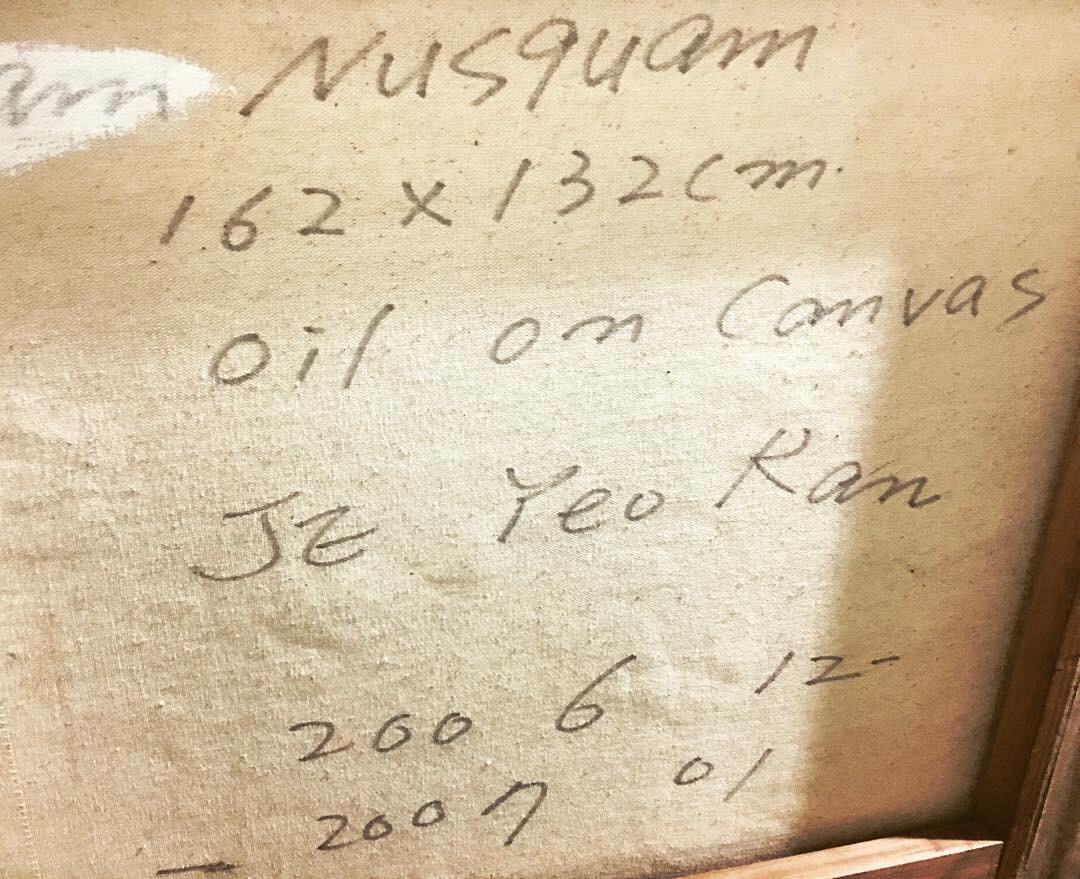 am Nusquam
162 x 132cm.
oil on Canvas
JE Yeo Ran
2006 12
- 2007 01